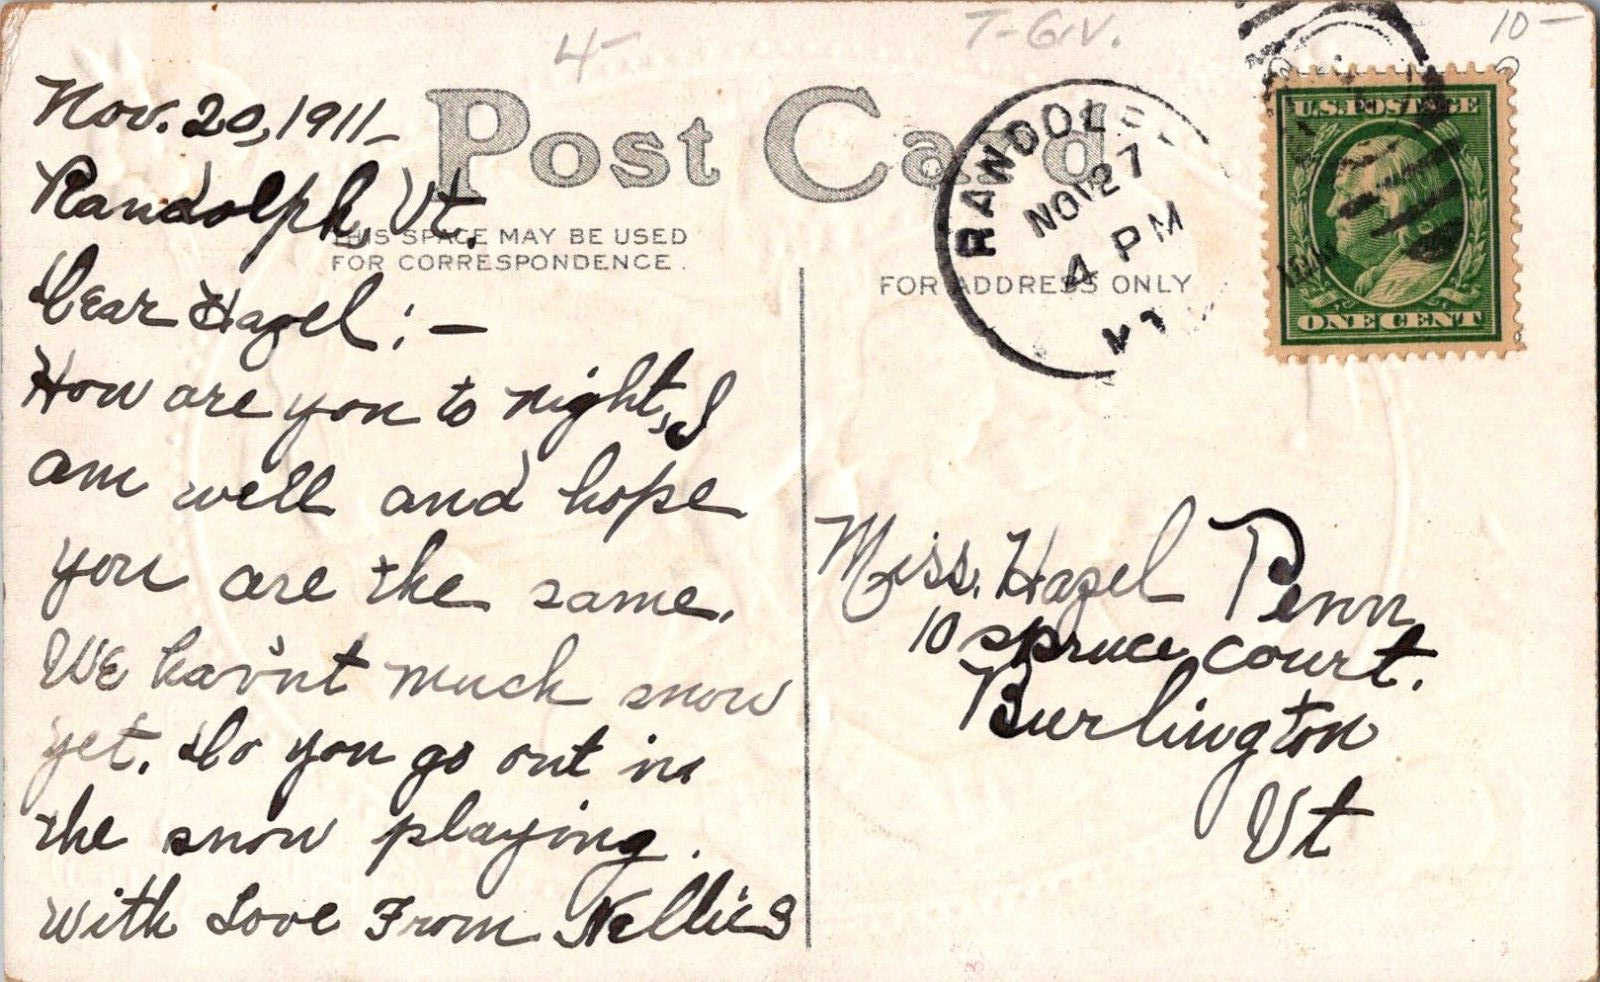 4-
T-GIV.
10-
Post Card
THIS SPACE MAY BE USED
FOR CORRESPONDENCE.
FOR ADDRESS ONLY
Nov. 20, 1911-
Randolph, Vt.
Dear Hazel:-
How are you to night, I
am well and hope
you are the same.
We hav'nt much snow
yet. Do you go out in
the snow playing.
With Love From Nellie S
RANDOLPH
NOV 27
4 PM
U.S. POSTAGE
ONE CENT
Miss. Hazel Penn
10 spruce court.
Burlington
Vt